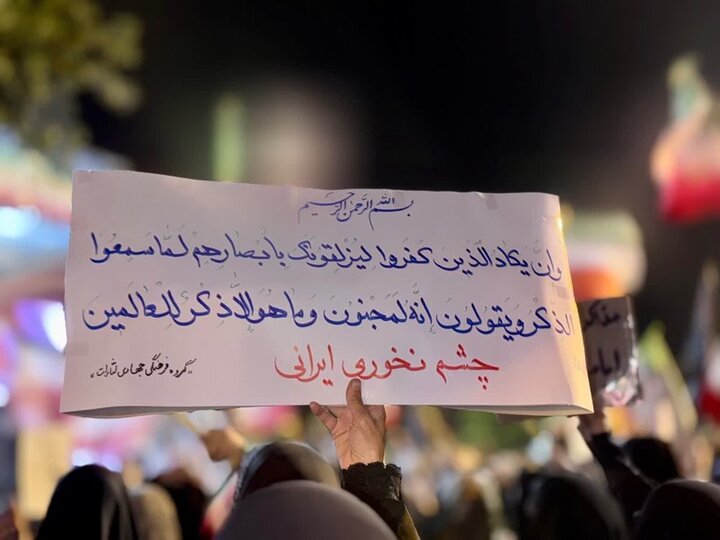 بسم الله الرحمن الرحیم
وَاِنْ یَکادُ الَّذینَ کَفَروا لَیُزلِقونَکَ بِاَبصارِهِم لَمّا سَمِعُوا
الذِکرَ و یَقولونَ اِنَّهُ لَمَجنون وَ ما هُوَ اِلّا ذِکرٌ لِلعالَمین
چشم نخوری ایرانی
"گروه فرهنگی جهادی لثارات"
مذاکره